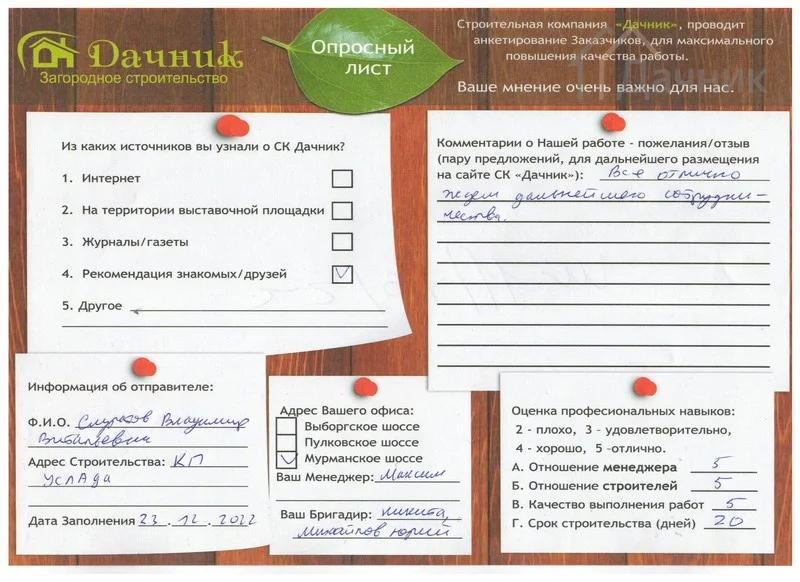 Дачник
Загородное строительство
Опросный
лист
Строительная компания «Дачник», проводит
анкетирование Заказчиков, для максимального
повышения качества работы.
Ваше мнение очень важно для нас.
Дачник
Из каких источников вы узнали о СК Дачник?
1. Интернет
2. На территории выставочной площадки
3. Журналы/газеты
4. Рекомендация знакомых/друзей
5. Другое
Комментарии о Нашей работе - пожелания/отзыв
(пару предложений, для дальнейшего размещения
на сайте СК «Дачник»): Все отлично
ждем дальнейшего сотрудни-
чества.
Информация об отправителе:
Ф.И.О. Владимир
Витальевич
Адрес Строительства: КП
УслАда
Дата Заполнения 23.12.2022
Адрес Вашего офиса:
Выборгское шоссе
Пулковское шоссе
Мурманское шоссе
Ваш Менеджер: Максим
Ваш Бригадир: Никита,
Михайлов Юрий
Оценка професиональных навыков:
2 - плохо, 3 - удовлетворительно,
4 - хорошо, 5 -отлично.
А. Отношение менеджера 5
Б. Отношение строителей 5
В. Качество выполнения работ 5
Г. Срок строительства (дней) 20